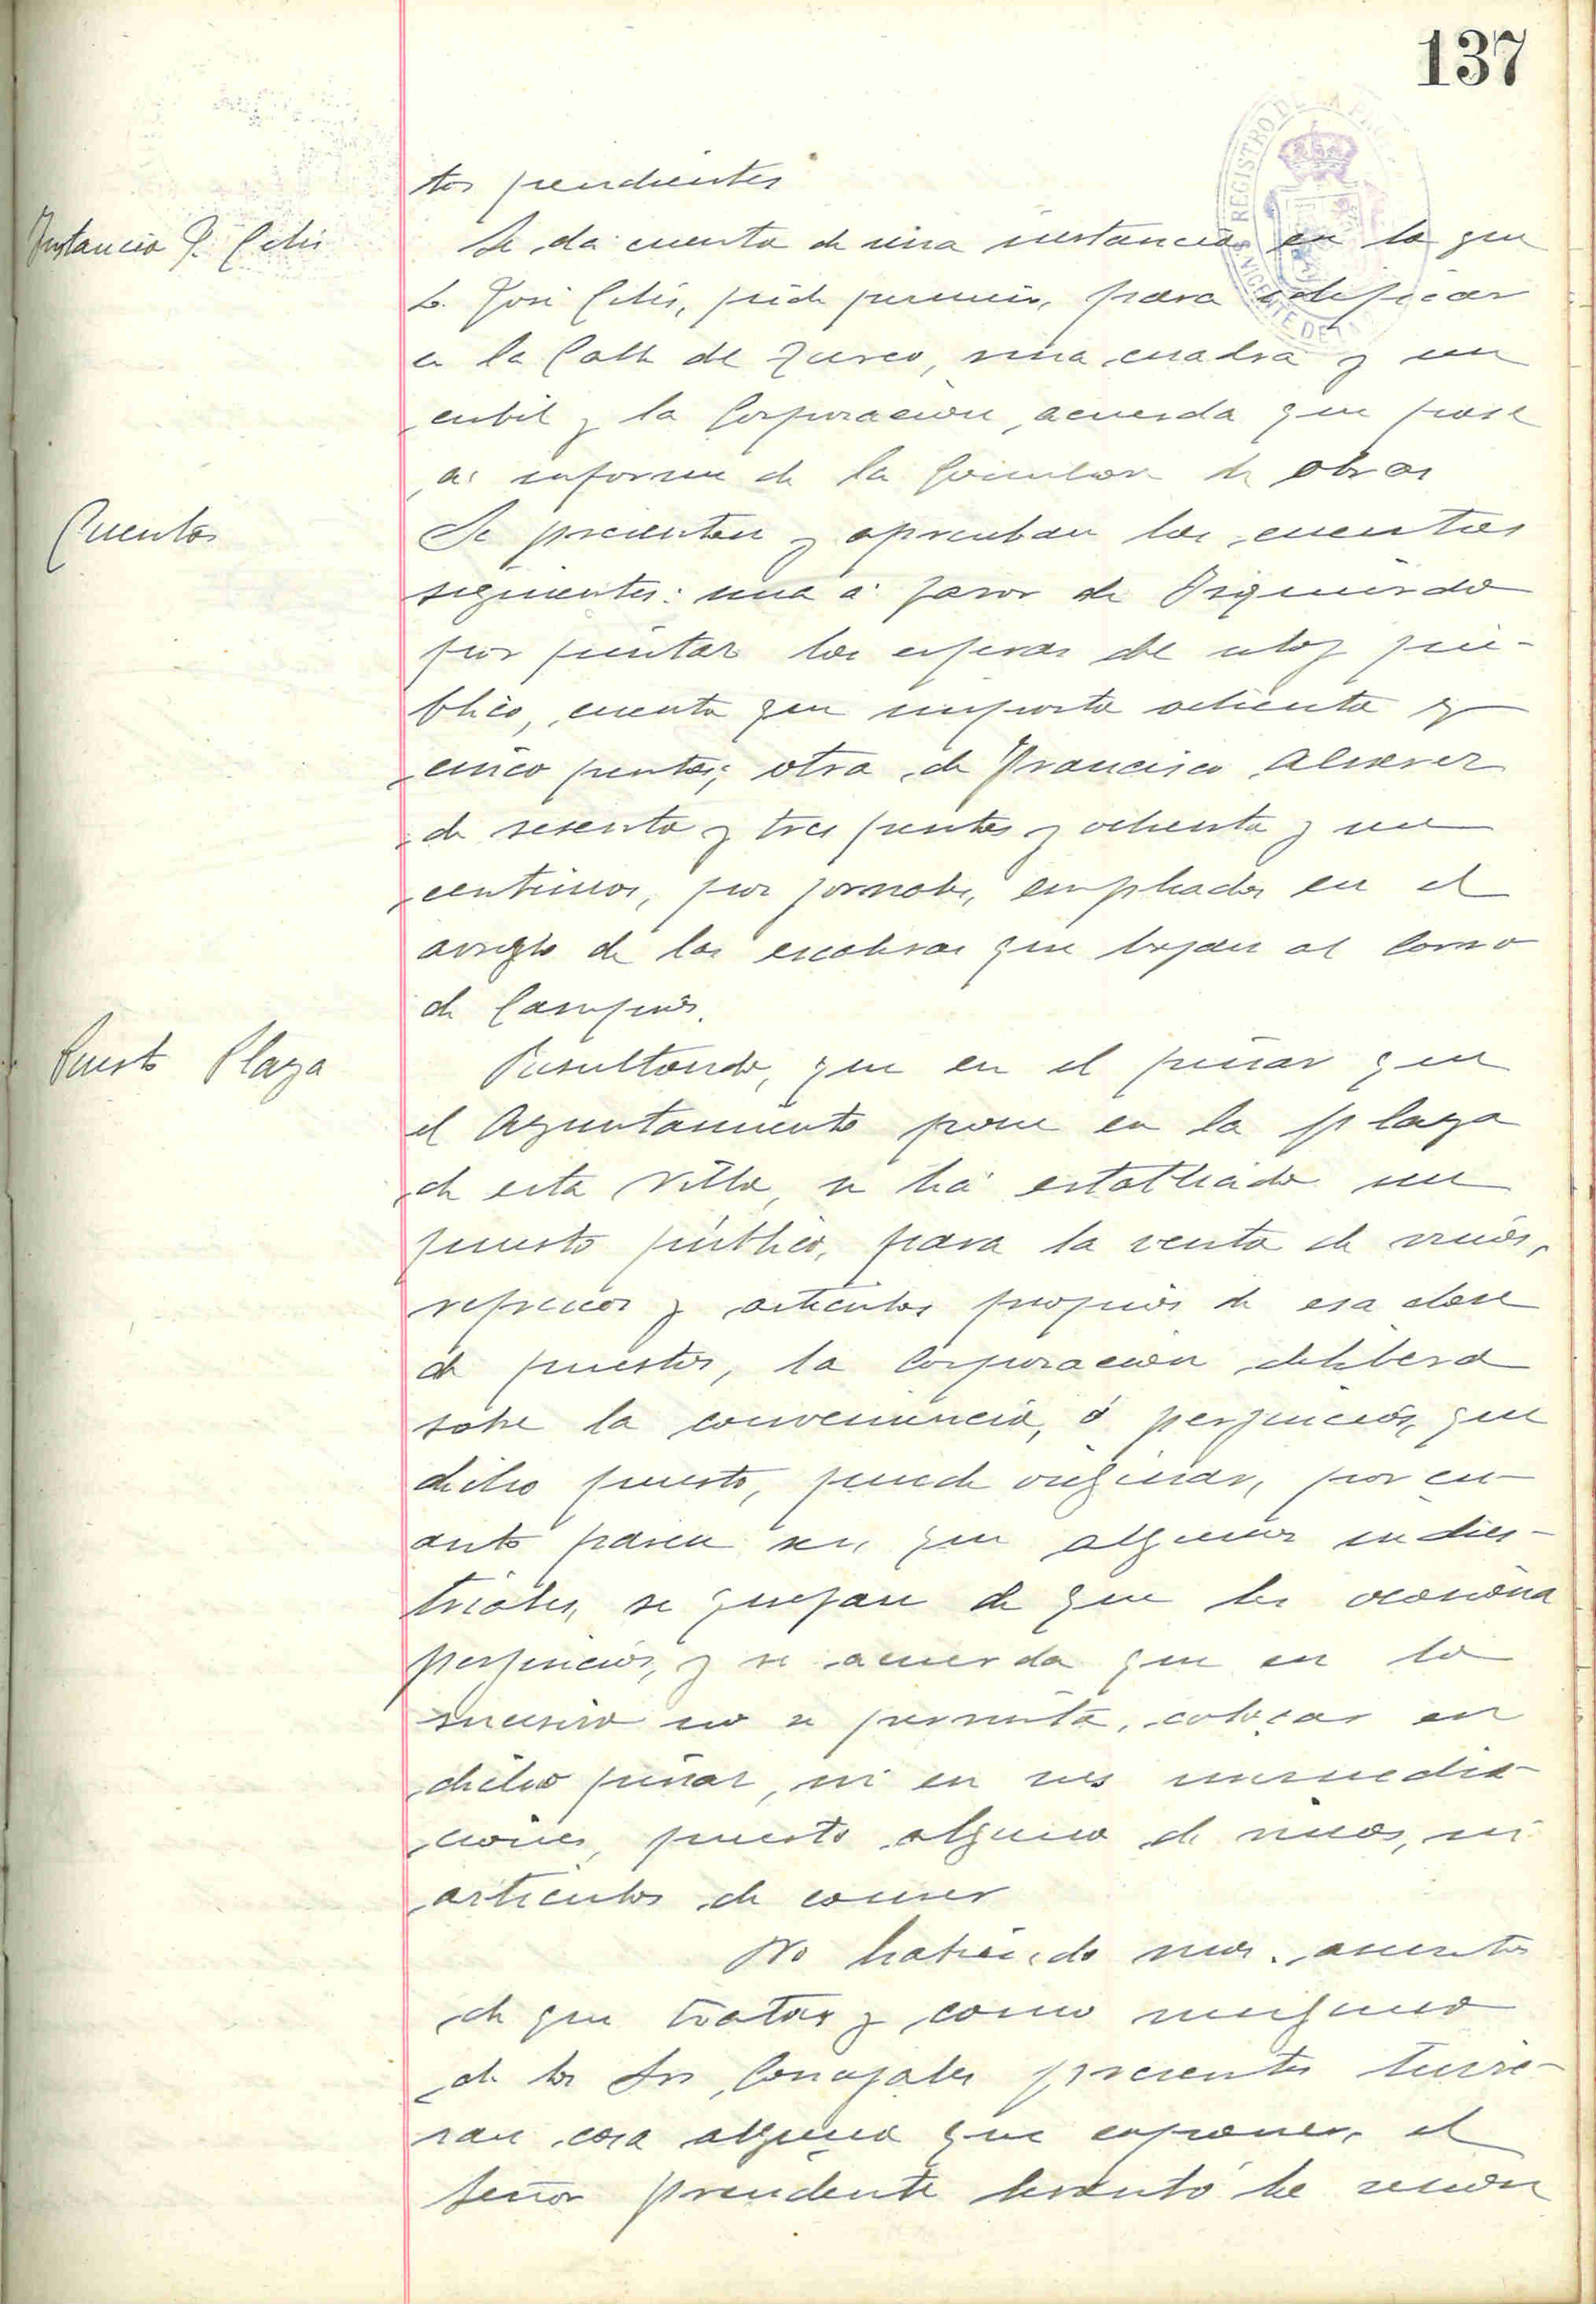 137
REGISTRO DE LA
VICENTE DE
tos pendientes
Instancia J. Celis
Se da cuenta de una instancia en la que
D. José Celis, pide permiso, para edificar
en la Calle de, una cuadra y un
cubil y la Corporación, acuerda que pase
a informe de la Comision de obras
Cuentas
Se presentan y aprueban las cuentas
siguientes: una a favor de Izquierdo
por pintar las esferas del reloj pú-
blico, cuenta que importa ochenta y
cinco pesetas; otra de Francisco Alvarez
de sesenta y tres pesetas y ochenta y un
centimos, por jornales, empleados en el
arreglo de las escaleras que bajan al Corro
de Campios.
Puesto Plaza
Resultando, que en el pinar que
el Ayuntamiento posee en la plaza
de esta Villa, se há establecido un
puesto público, para la venta de vinos,
refrescos y articulos propios de esa clase
de puestos, la Corporacion delibera
sobre la conveniencia, ó perjuicios, que
dicho puesto, puede originar, por cu-
anto parece ser, que algunos indus-
triales, se quejan de que les ocasiona
perjuicios, y se acuerda que en lo
sucesivo no se permita, colocar en
dicho pinar, ni en sus inmedia-
ciones, puesto alguno de vinos, ni
articulos de comer
No habiendo mas asuntos
de que tratar y como ninguno
de los Srs Concejales presentes tuvie-
ran cosa alguna que exponer, el
Señor presidente levantó la sesion